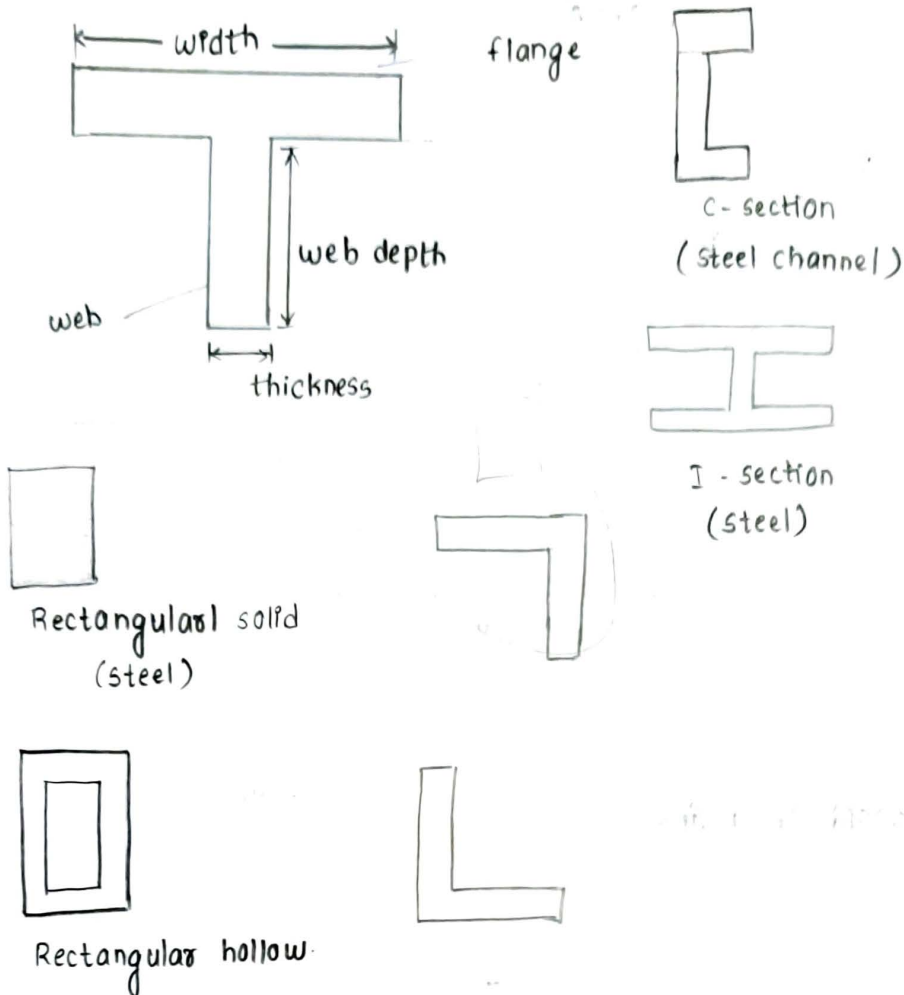 width
flange
web depth
web
thickness
C- section
(steel channel)
I - section
(steel)
Rectangularl solid
(steel)
Rectangular hollow.